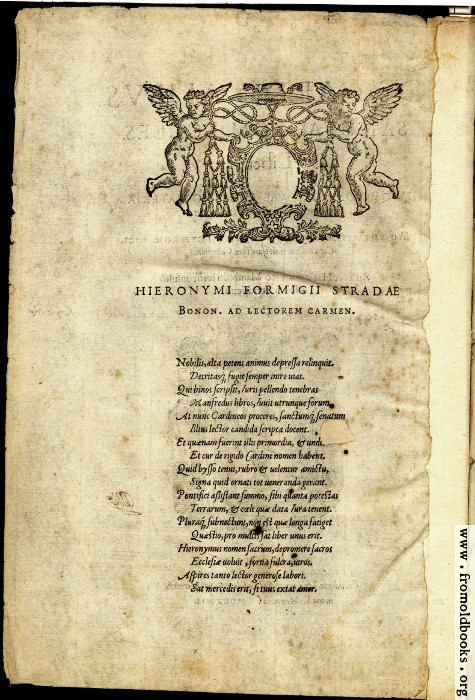 HIERONYMI FORMIGII STRADAE
BONON. AD LECTOREM CARMEN.
Nobilis, alta petens animus depressa relinquit.
Detritasq; fugit semper inire uias.
Qui binos scripsit, Iuris pellendo tenebras
Manfredus libros, Iuuit utrunque forum,
At nunc Cardineos proceres, sanctumq; senatum
Illius lector candida scripta docent.
Et quænam fuerint illis primordia, & unde
Et cur de rigido Cardine nomen habent.
Quid bysso tenui, rubro & uelentur amictu,
Signa quid ornati tot ueneranda gerant.
Pontifici assistant summo, sibi quanta potestas
Terrarum, & cœli quæ data Iura tenent.
Pluraq; subnectunt, non est quæ longa fatiget
Quæstio, pro multis sat liber unus erit.
Hieronymus nomen sacrum, depromere sacros
Ecclesiæ uoluit, fortia fulcra, uiros.
Aspires tanto lector generose labori.
Sat mercedis erit, si tuus extat amor.
www.fromoldbooks.org